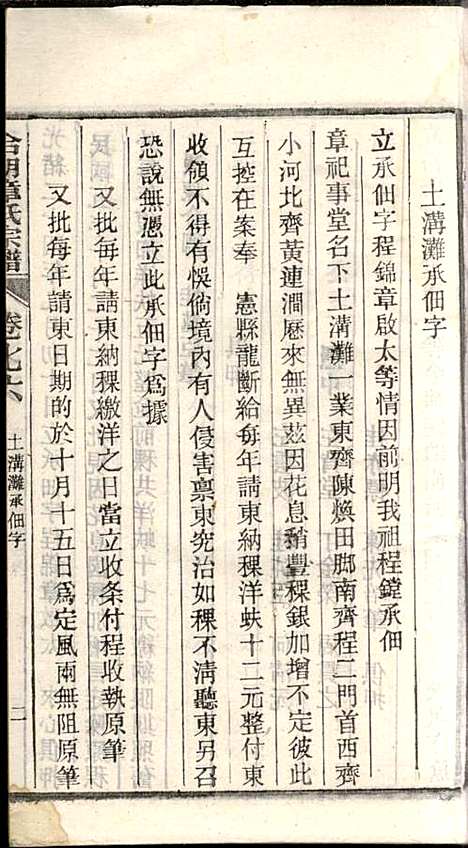 土溝灘承佃字
立承佃字程錦章啟太等情因前明我祖程鏜承佃
章祀事堂名下土溝灘一業東齊陳煥田脚南齊程二門首西齊
小河北齊黃連澗歷來無異茲因花息稍豐稞銀加增不定彼此
互控在案奉　憲縣龍斷給每年請東納稞洋蚨十二元整付東
收領不得有悞倘境內有人侵害禀東究治如稞不淸聽東另召
恐說無憑立此承佃字爲據
又批每年請東納稞繳洋之日當立收条付程收執原筆
又批每年請東日期的於十月十五日爲定風雨無阻原筆
章氏宗譜
土溝灘承佃字
二